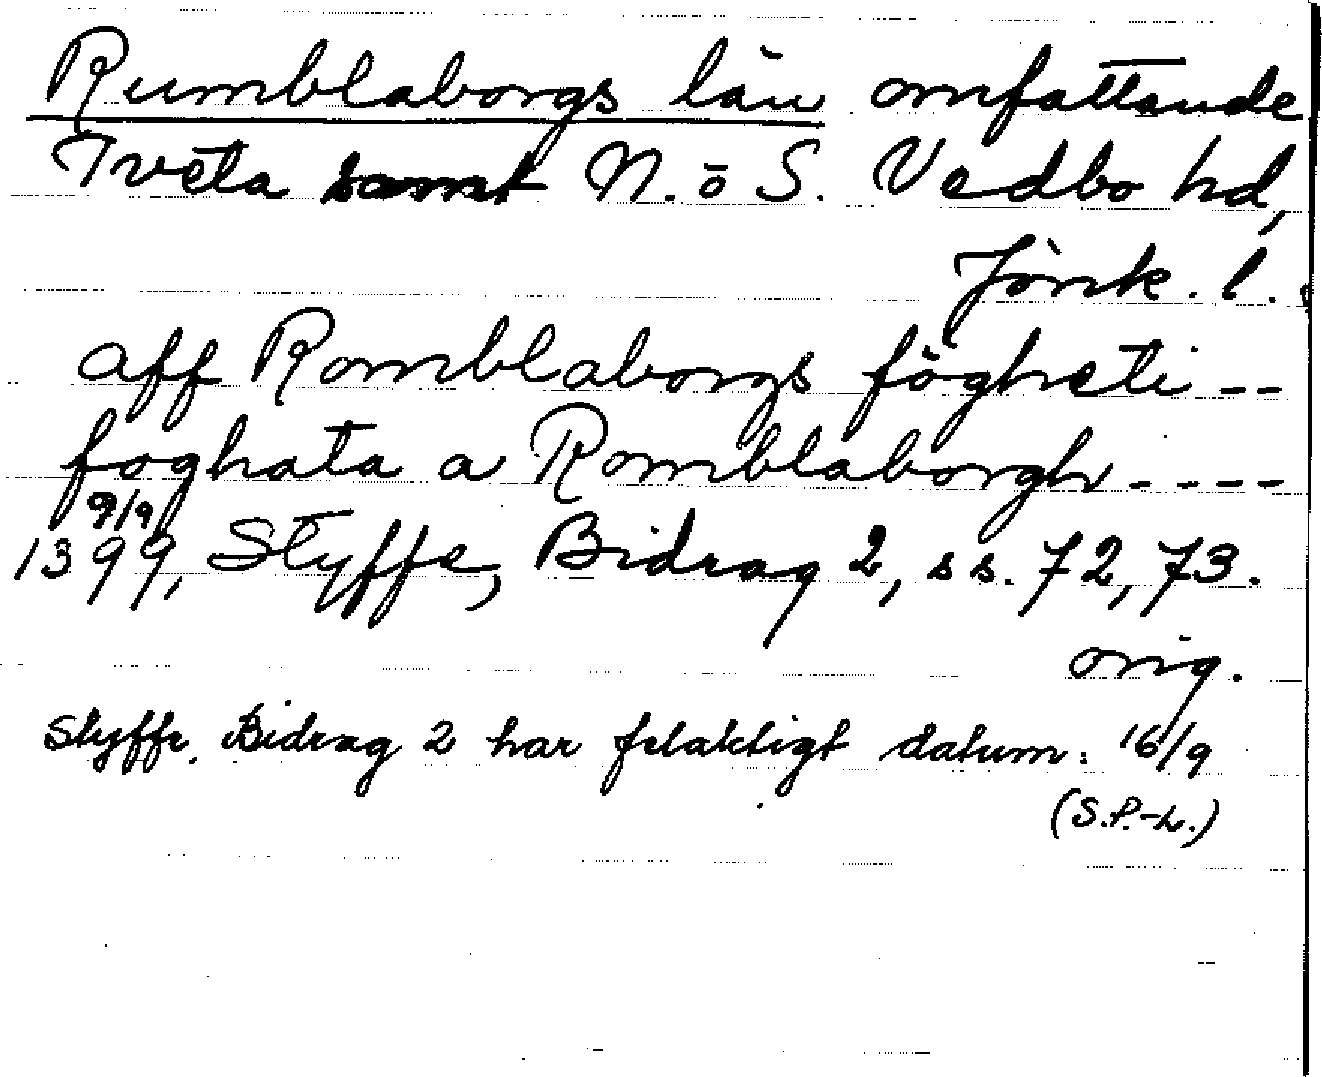 Rumblaborgs län omfattande
Tveta samt N. o S. Vedbo hd,
Jönk. l.
aff Romblaborgs föghati --
foghata a Romblaborgh ----
9/9
1399, Styffe, Bidrag 2, ss. 72, 73.
orig.
Styffe, Bidrag 2 har felaktigt datum: 16/9
(S.P.-L.)